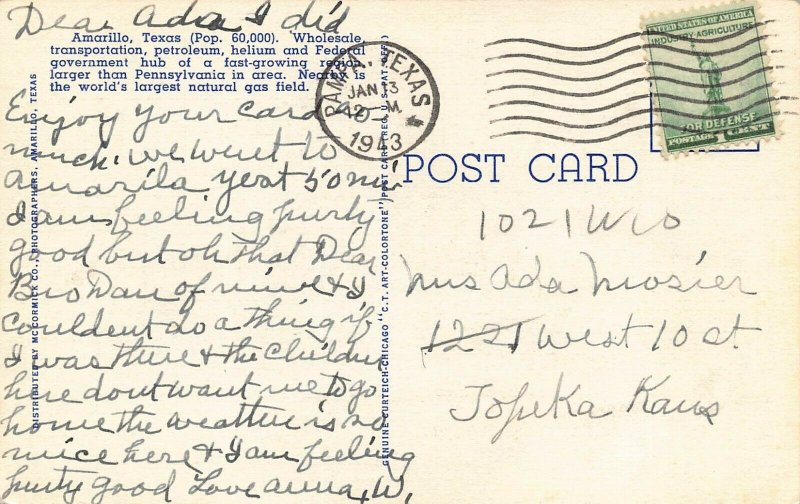 Dear Ada I did
Amarillo, Texas (Pop. 60,000). Wholesale,
transportation, petroleum, helium and Federal
government hub of a fast-growing region
larger than Pennsylvania in area. Nearby is
the world's largest natural gas field.
Enjoy your card so
much. we went to
Amarila yest 50 mi
I am feeling purty
good but oh that Dear
Bro Dan of mine & I
couldent do a thing if
I was there & the Childrn
here dont want me to go
home the weather is so
nice here & I am feeling
purty good Love anna, W,
DISTRIBUTED BY MCCORMICK CO., PHOTOGRAPHERS, AMARILLO, TEXAS
GENUINE CURTEICH-CHICAGO "C.T. ART-COLORTONE" POST CARD (REG. U.S. PAT. OFF.)
PAMPA, TEXAS
JAN 13
12 — M
1943
UNITED STATES OF AMERICA
INDUSTRY-AGRICULTURE
FOR DEFENSE
POSTAGE 1 CENT
POST CARD
1021 W 10
Mrs Ada Mosier
1221 West 10 st
Topeka Kans